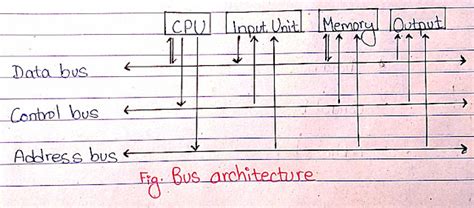 CPU Input Unit Memory Output
Data bus
Control bus
Address bus
Fig. Bus architecture